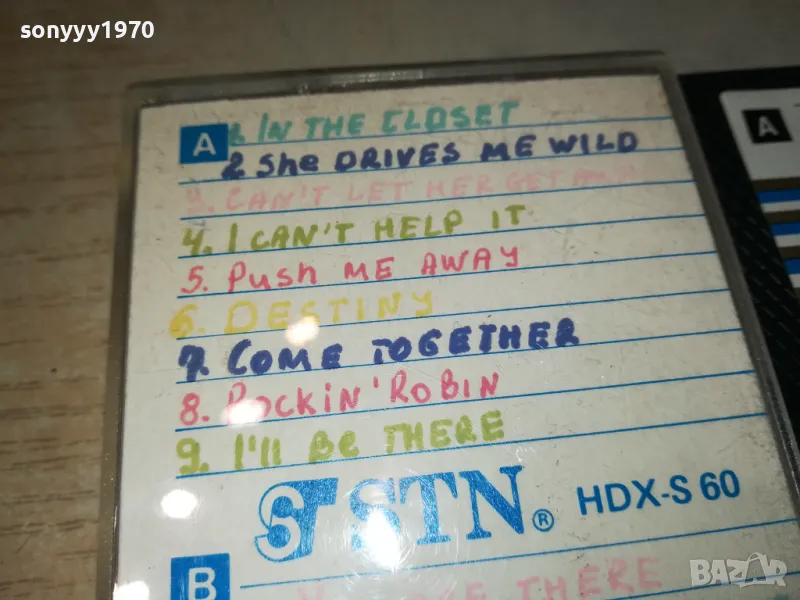 sonyyy1970
A
1. IN THE CLOSET
A
2. She DRIVES ME WILD
3. CAN'T LET HER GET AWAY
4. I CAN'T HELP IT
5. Push ME AWAY
6. DESTINY
7. COME TOGETHER
8. ROCKIN' ROBIN
9. I'll Be THERE
STN® HDX-S 60
B
THERE
BAZAR